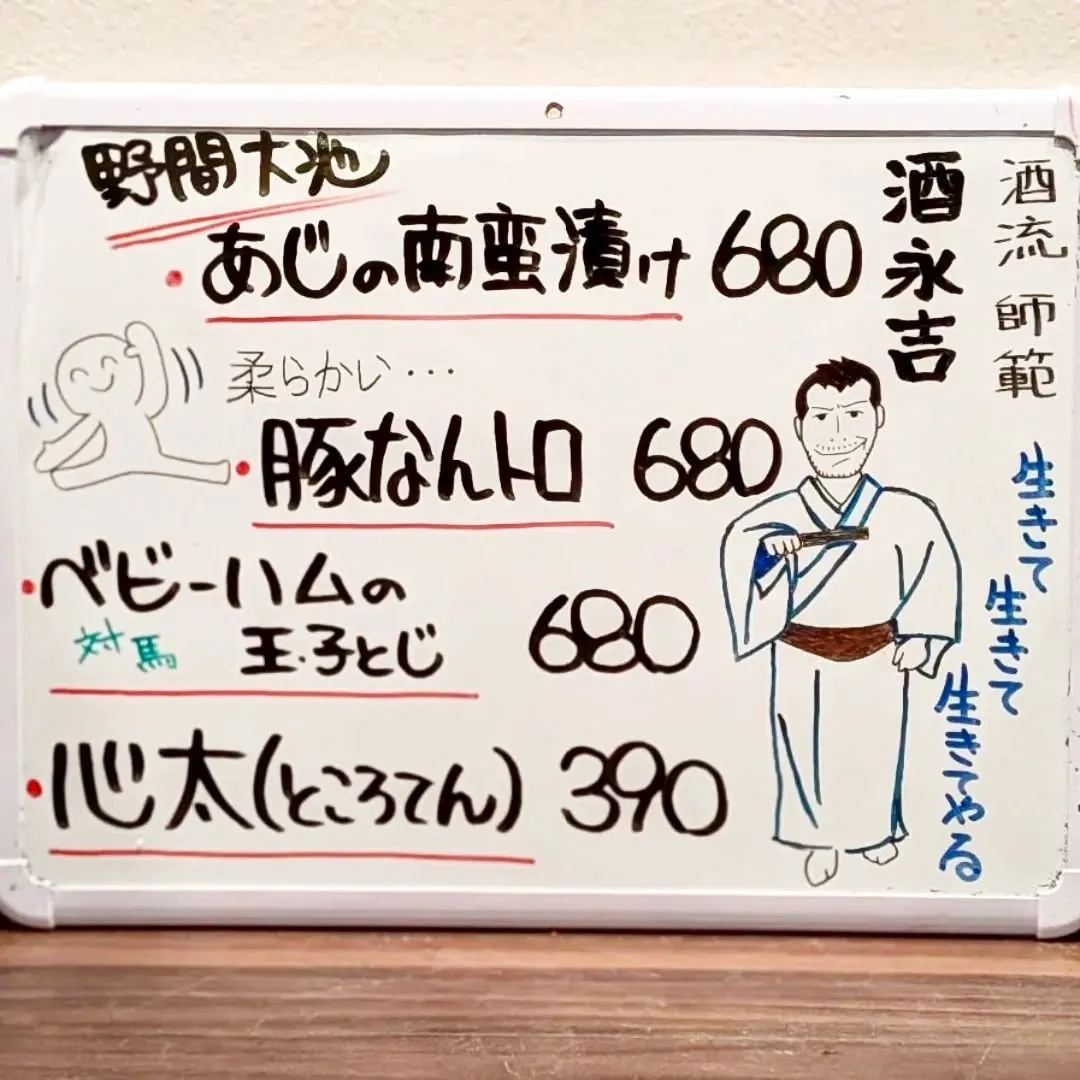 野間大池
・あじの南蛮漬け 680
柔らかい…
・豚なんトロ 680
・ベビーハムの
対馬 玉子とじ 680
・心太(ところてん) 390
酒永吉
酒流 師範
生きて
生きて
生きてやる